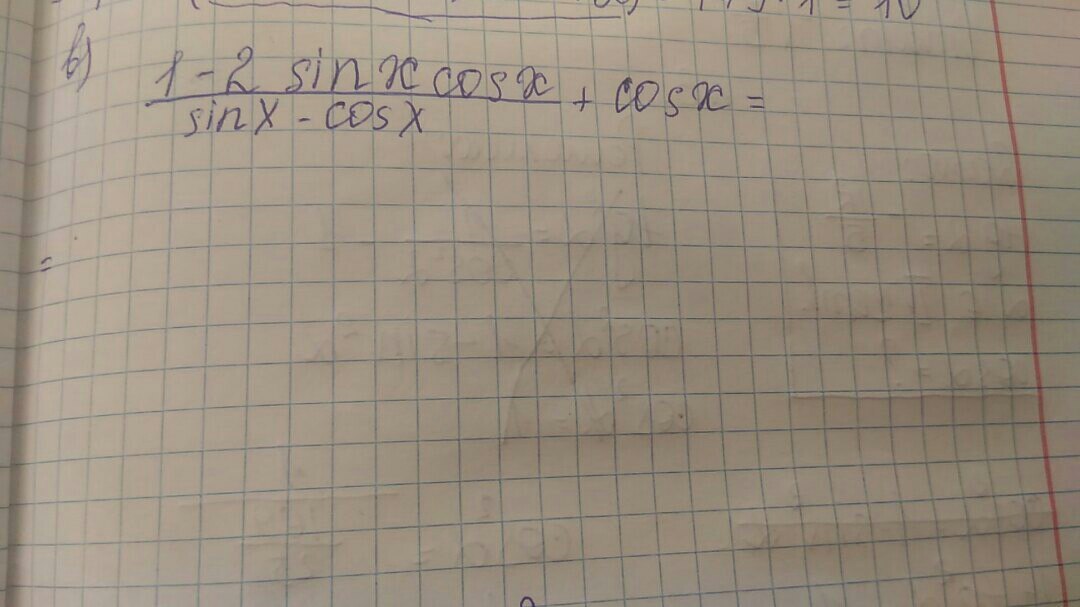 · 1 = 10
в)
1 - 2 sin x cos x
sin x - cos x
+ cos x =
=